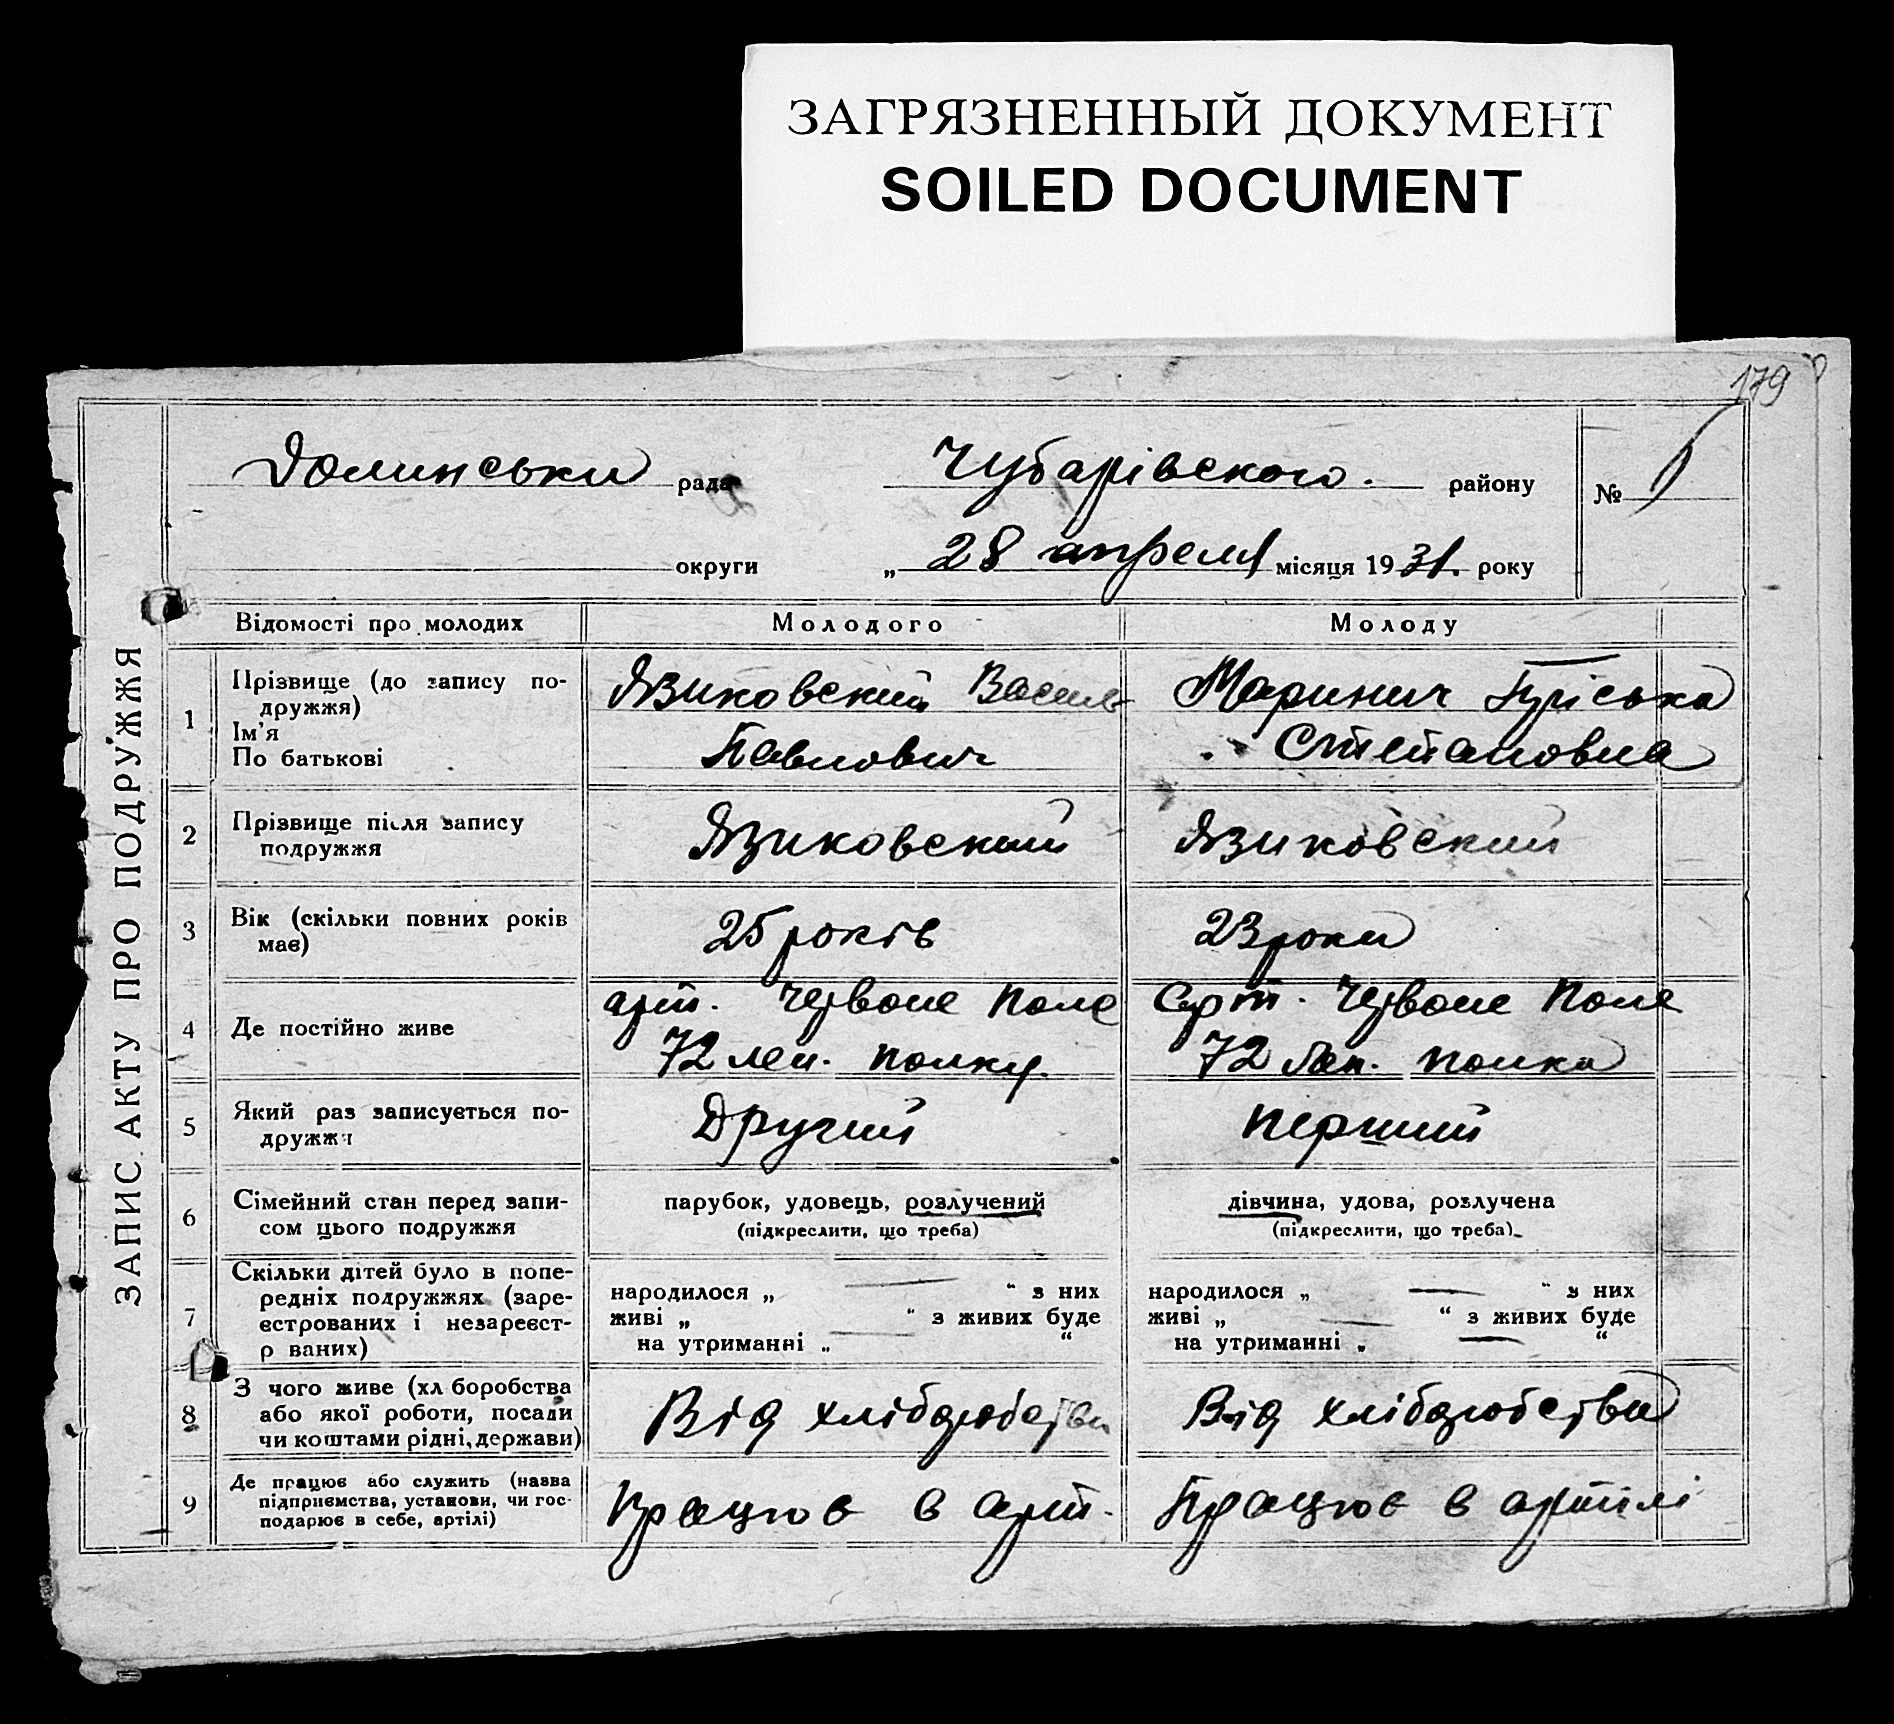 ЗАГРЯЗНЕННЫЙ ДОКУМЕНТ
SOILED DOCUMENT
179
Долинська рада Чубарівского. району №
округи „ 28 апреля місяця 1931. року
ЗАПИС АКТУ ПРО ПОДРУЖЖЯ
Відомості про молодих Молодого Молоду
1 Прізвище (до запису подружжя) Язиковский Василь Маринич
Ім'я
По батькові Павлович Степановна
2 Прізвище після запису Язиковский Язиковский
подружжя
3 Вік (скільки повних років 25 років 23 роки
має)
арт. Червоне Поле Арт. Червоне Поле
4 Де постійно живе
72 полку. 72 полка
5 Який раз записується по- Другий перший
дружжя
6 Сімейний стан перед запи- парубок, удовець, розлучений дівчина, удова, розлучена
сом цього подружжя (підкреслити, що треба) (підкреслити, що треба)
7 Скільки дітей було в попе-
редніх подружжях (заре- народилося „ — “ з них народилося „ — “ з них
єстрованих і незареєст- живі „ “ з живих буде живі „ — “ з живих буде
р ваних) на утриманні „ — “ на утриманні „ — “
8 З чого живе (хл боробства Від хліборобства Від хліборобства
або якої роботи, посади
чи коштами рідні, держави)
9 Де працює або служить (назва Працює в арт. Працює в артілі
підприємства, установи, чи гос-
подарює в себе, артілі)